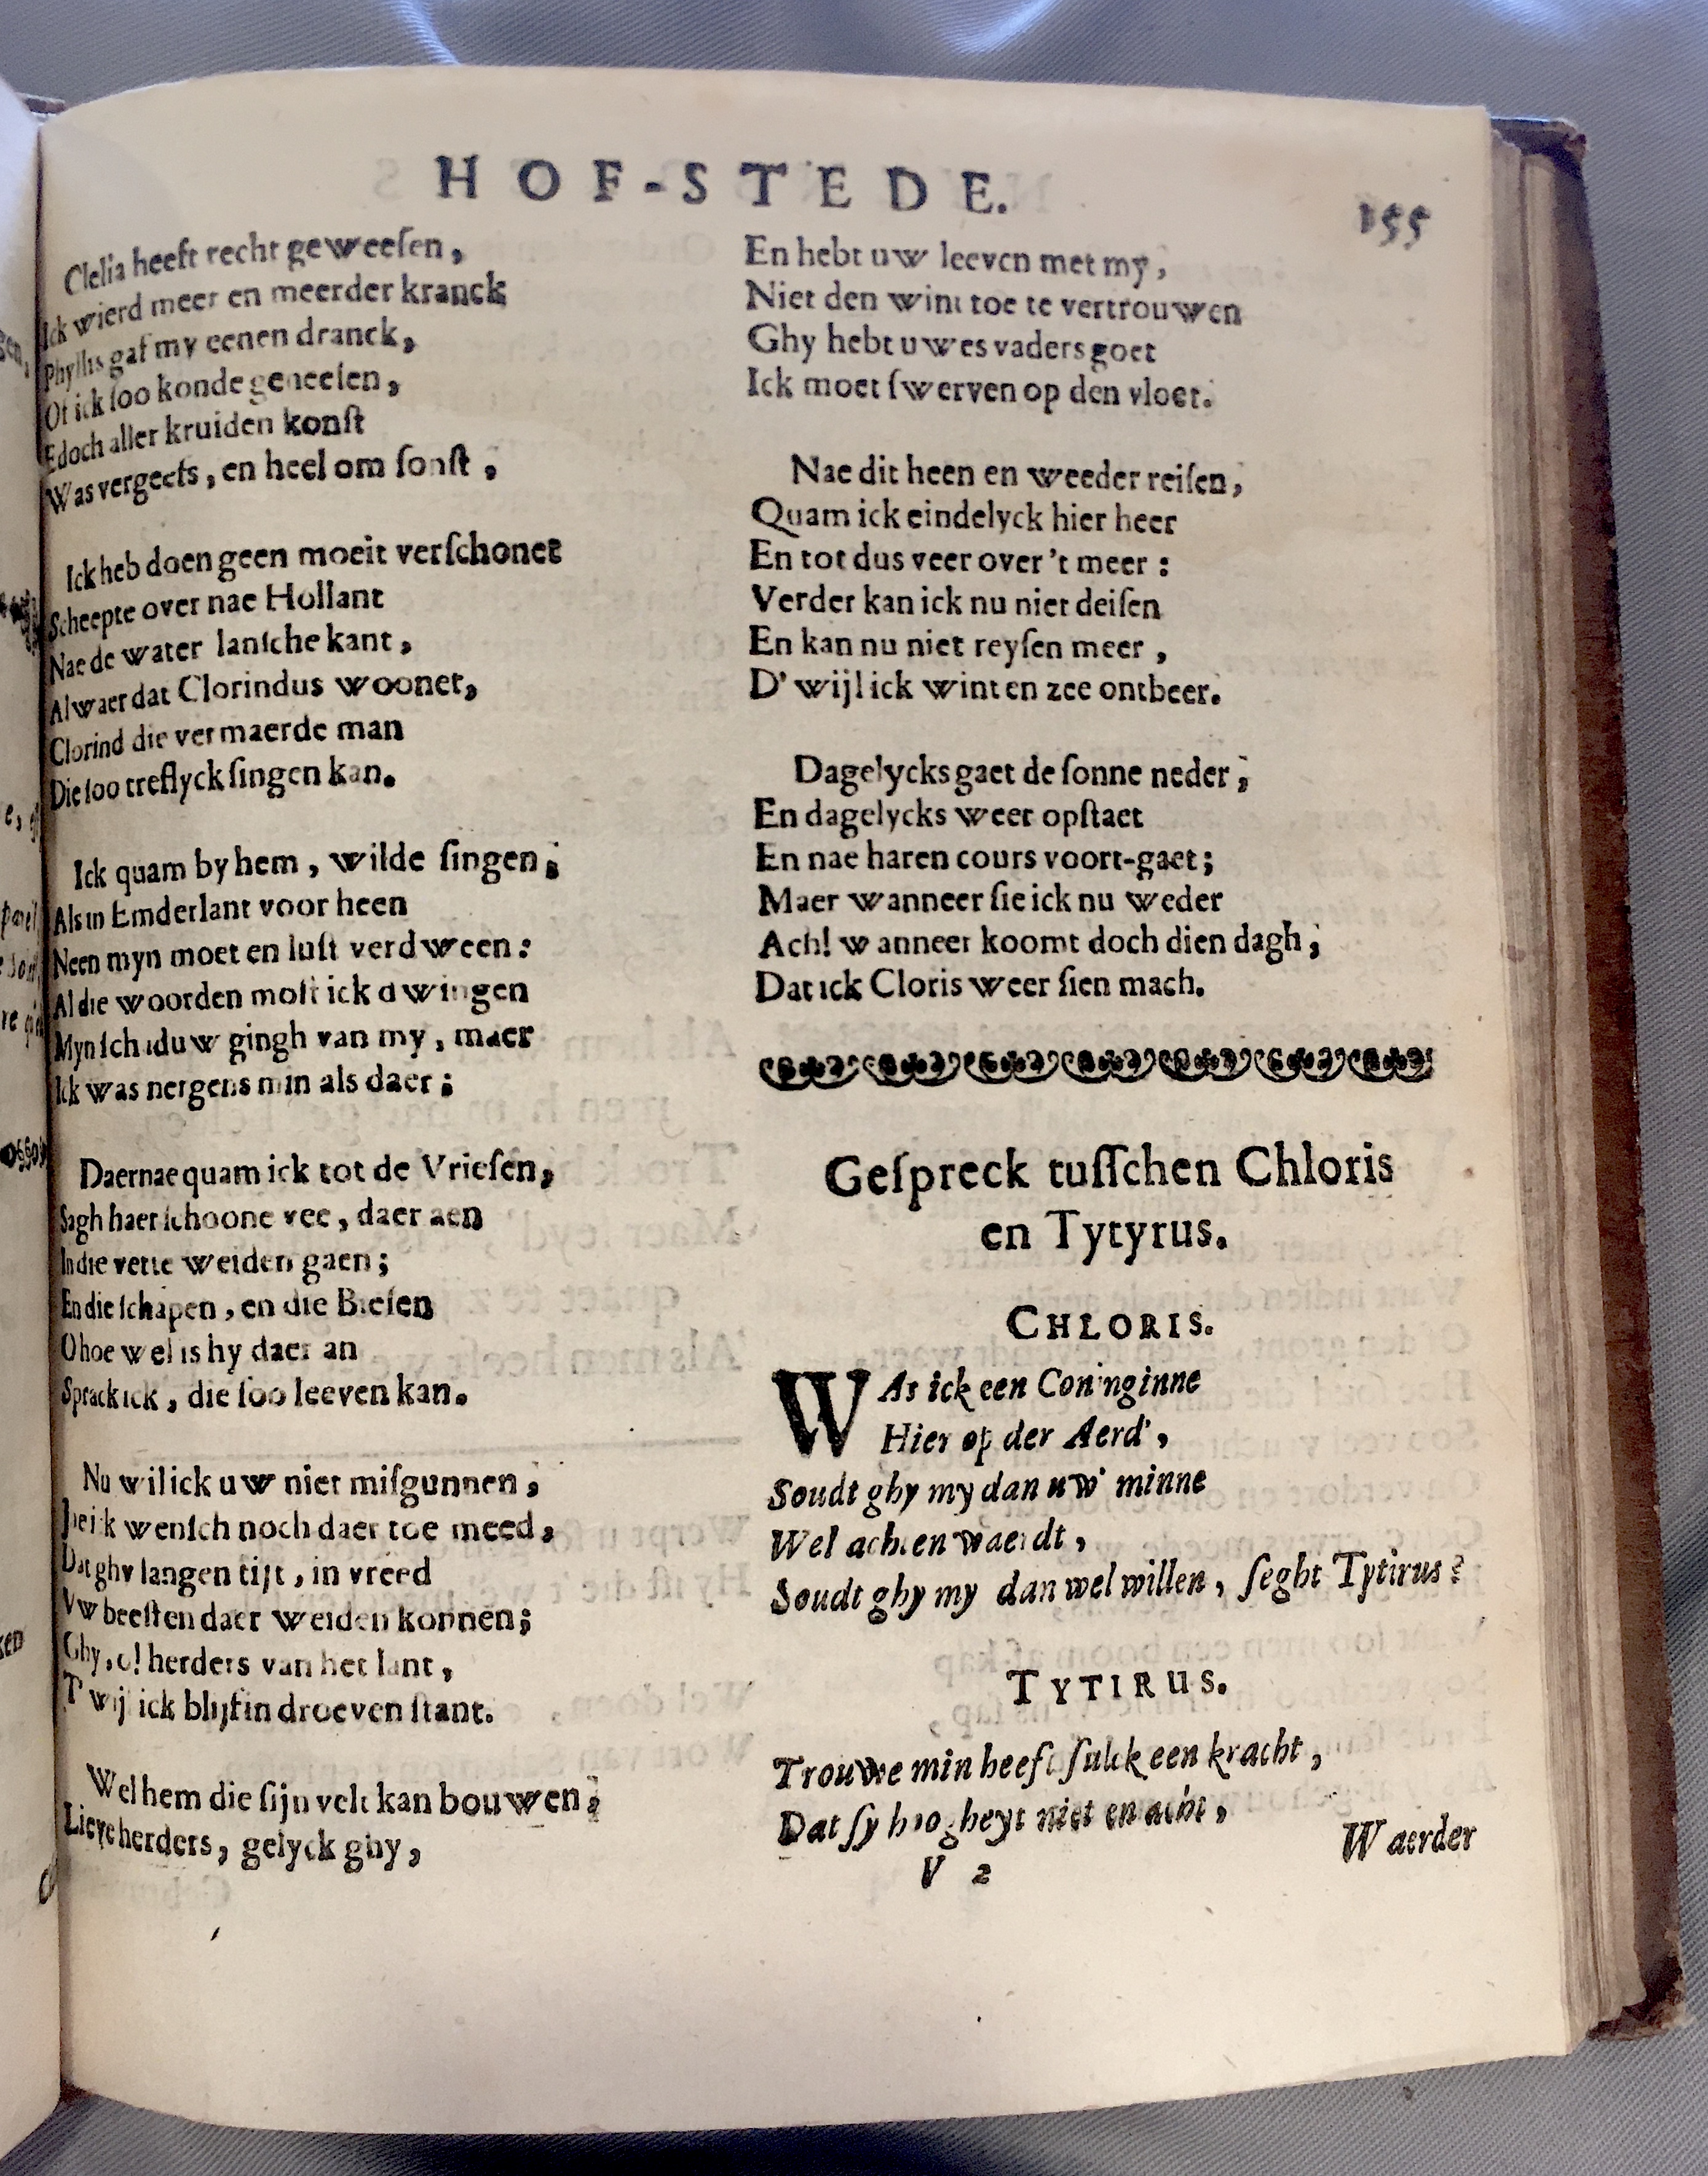 HOF-STEDE.
155
Clelia heeft recht geweeſen,
Ick wierd meer en meerder kranck
Phyllis gaf my eenen dranck,
Of ick ſoo konde geneeſen,
Edoch aller kruiden konſt
Was vergeefs, en heel om ſonſt,
Ick heb doen geen moeit verſchonet
Scheepte over nae Hollant
Nae de water lanſche kant,
Alwaer dat Clorindus woonet,
Clorind die vermaerde man
Die ſoo treflyck ſingen kan.
Ick quam by hem, wilde ſingen;
Als in Emderlant voor heen
Neen myn moet en luſt verdween:
Al die woorden moſt ick dwingen
Myn ſchaduw gingh van my, maer
Ick was nergens min als daer;
Daernae quam ick tot de Vrieſen,
Sagh haer ſchoone vee, daer aen
In die vette weiden gaen;
En die ſchapen, en die Bieſen
O hoe wel is hy daer an
Sprack ick, die ſoo leeven kan.
Nu wil ick uw niet miſgunnen,
wenſch noch daer toe meed,
Dat ghy langen tijt, in vreed
Vw beeſten daer weiden konnen;
Ghy, o! herders van het lant,
T'wijl ick blijf in droeven ſtant.
Wel hem die ſijn velt kan bouwen;
Lieve herders, gelyck ghy,
En hebt uw leeven met my,
Niet den wint toe te vertrouwen
Ghy hebt uwes vaders goet
Ick moet ſwerven op den vloet.
Nae dit heen en weeder reiſen,
Quam ick eindelyck hier heer
En tot dus veer over 't meer:
Verder kan ick nu niet deiſen
En kan nu niet reyſen meer,
D'wijl ick wint en zee ontbeer.
Dagelycks gaet de ſonne neder;
En dagelycks weer opſtaet
En nae haren cours voort-gaet;
Maer wanneer ſie ick nu weder
Ach! wanneer koomt doch dien dagh;
Dat ick Cloris weer ſien mach.
Geſpreck tuſſchen Chloris
en Tytyrus.
CHLORIS.
WAs ick een Coninginne
Hier op der Aerd',
Soudt ghy my dan uw' minne
Wel achten waerdt,
Soudt ghy my dan wel willen, ſeght Tytirus?
TYTIRUS.
Trouwe min heeft ſulck een kracht,
Dat ſy hoogheyt niet en acht,
V 2
Waerder